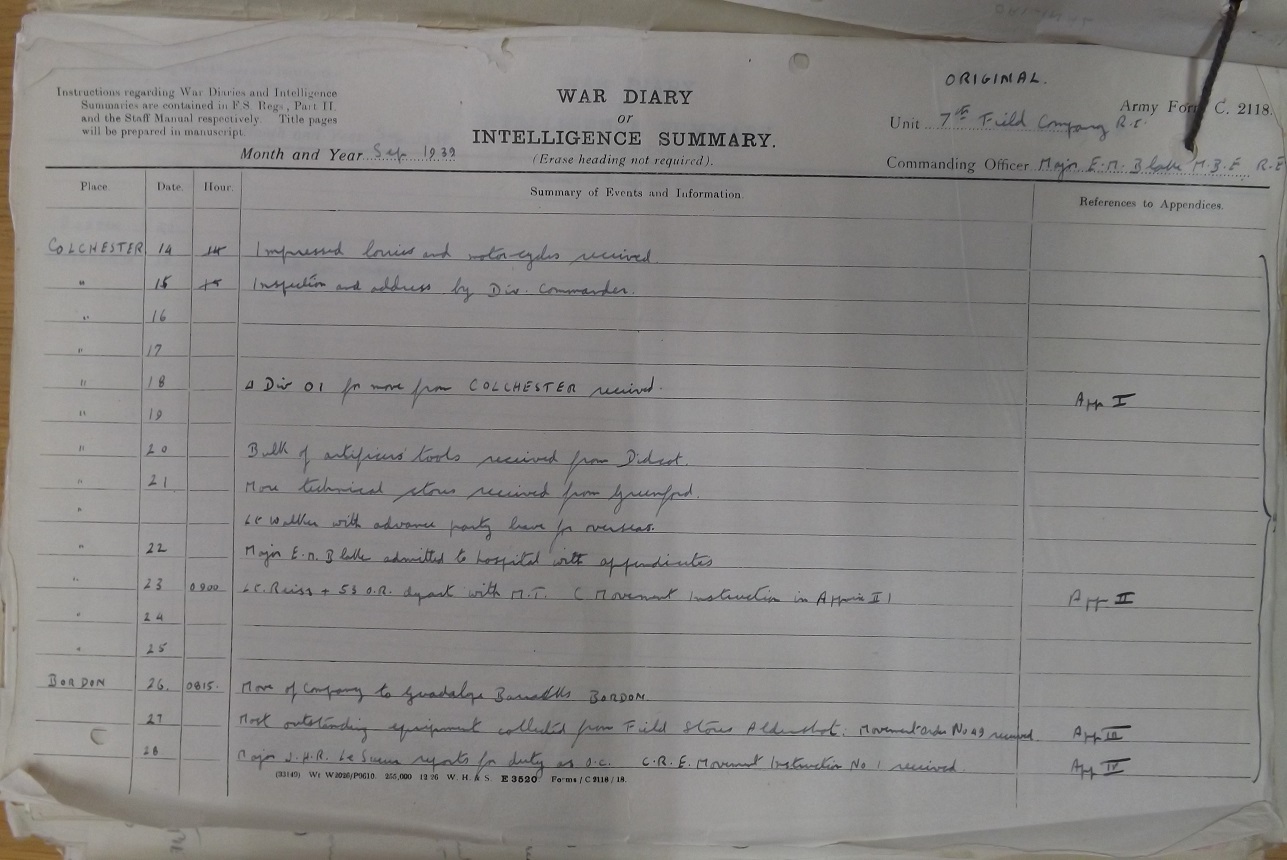 ORIGINAL.
Instructions regarding War Diaries and Intelligence
Summaries are contained in F.S. Regs., Part II.
and the Staff Manual respectively. Title pages
will be prepared in manuscript.
WAR DIARY
or
INTELLIGENCE SUMMARY.
(Erase heading not required).
Army Form C. 2118.
Unit 7th Field Company R.E.
Month and Year Sep. 1939
Commanding Officer Major E.M. Blake M.B.E. R.E
Place. Date. Hour. Summary of Events and Information. References to Appendices.
COLCHESTER 14 Impressed lorries and motorcycles received.
" 15 Inspection and address by Div. Commander.
" 16
" 17
" 18 Div 01 for move from COLCHESTER received. App I
" 19
" 20 Bulk of artificers' tools received from Didcot.
" 21 More technical stores received from Greenford.
" Lt Walker with advance party leave for overseas.
" 22 Major E.M. Blake admitted to hospital with appendicitis
" 23 0900 Lt. Reiss + 53 O.R. depart with M.T. ( Movement Instruction in II) App II
" 24
" 25
BORDON 26. 0815. Move of Company to Guadalope Barracks BORDON.
27 Most outstanding equipment collected from Field Stores Aldershot. Movement Order No 49 received App III
28 Major J.H.R. Le Sueur reports for duty as O.C. C.R.E. Movement Instruction No 1 received. App IV
(33149) Wt W2026/P9610 255,000 12 26 W. H. & S. E 3520 Forms / C 2118 / 18.